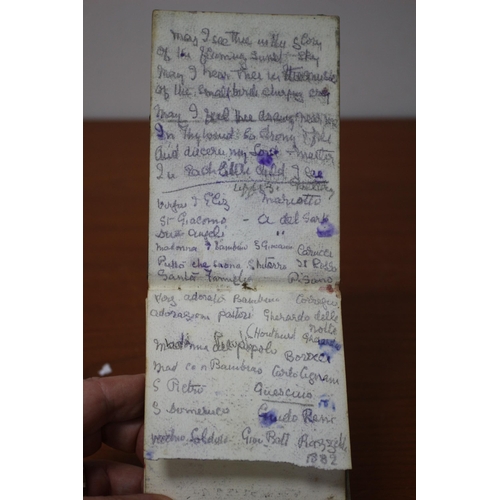 May I see thee in thy Glory
Of the flaming sunset sky
May I hear thee in
of the small birds chirping cry
May I feel thee
In Thy wind so strong & free
And discern my Lord & master
In each little child I see
Uffizi
Virgin & Eliz Mariotto
St Giacomo - A del Sarto
Due "
Madonna & Bambino S Giovanni Carucci
Putto che suona Il Rosso
Santa Famiglia Pisano
Verg adorata Bambino Correggio
adorazione pastori Gherardo delle
Notte
(Honthurst
Madonna del popolo Barocci
Mad con Bambino Carlo Cignani
S Pietro Guercino
S Domenico Guido Reni
vecchio Soldato Giov Batt
1882